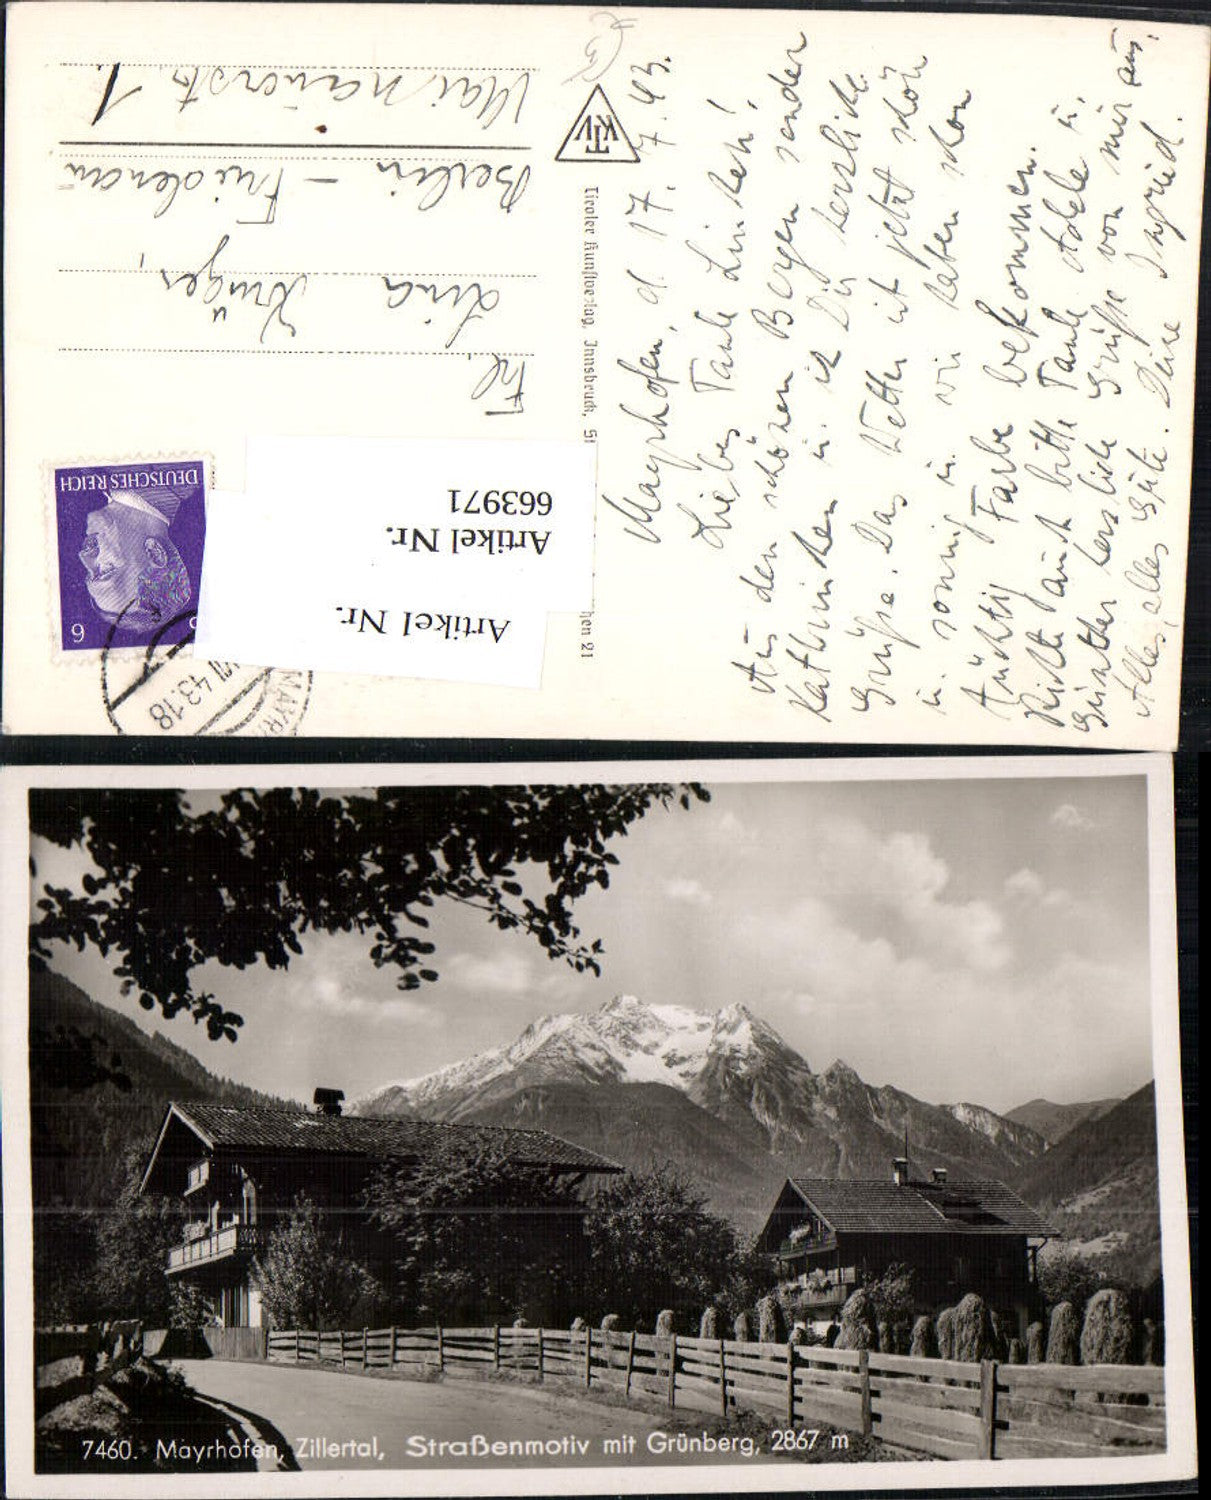 Mayrhofen, d 17. 7. 43.
Liebes Tante Linchen!
Aus den schönen Bergen sendet
Kathrinchen u. ich Dir herzliche
Grüße. Das Wetter ist jetzt schön
u. sonnig u. wir haben schon
tüchtig Farbe bekommen.
Richte auch bitte Tante Adele u.
Günther herzliche Grüße von mir aus.
Alles, alles Gute. Deine Ingrid.
TKV
Tiroler Kunstverlag, Innsbruck, 
21
DEUTSCHES REICH
6
43.18
MAYR
Artikel Nr.
Artikel Nr.
663971
Frl.
Lina Krüger,
Berlin - Friedenau
Mainauerstr. 1.
7460. Mayrhofen, Zillertal, Straßenmotiv mit Grünberg, 2867 m